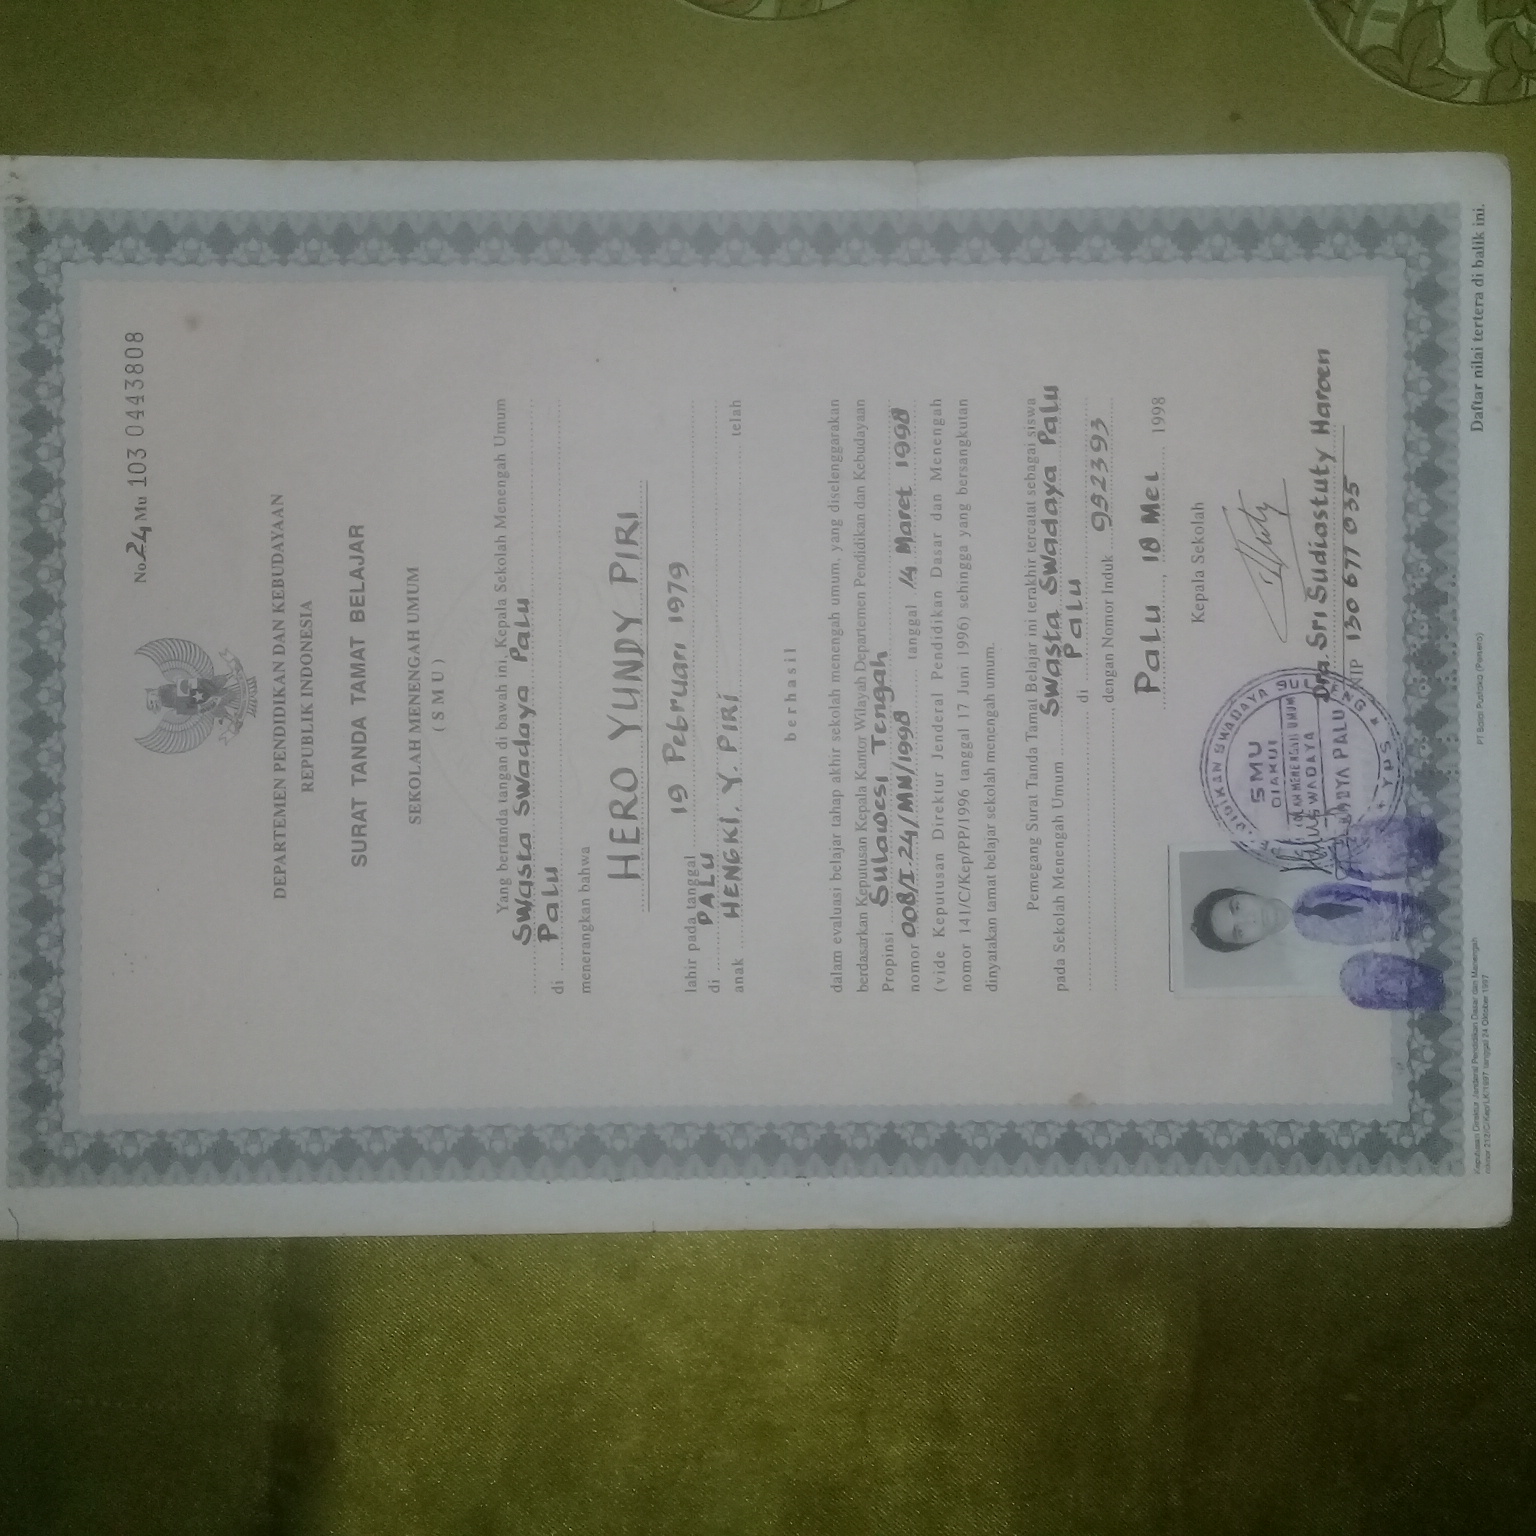 No 24 Mu 103 0443808
DEPARTEMEN PENDIDIKAN DAN KEBUDAYAAN
REPUBLIK INDONESIA
SURAT TANDA TAMAT BELAJAR
SEKOLAH MENENGAH UMUM
( S M U )
Yang bertanda tangan di bawah ini, Kepala Sekolah Menengah Umum
Swasta Swadaya Palu
di Palu
menerangkan bahwa
HERO YUNDY PIRI
lahir pada tanggal 19 Pebruari 1979
di PALU
anak HENGKI. Y. PIRI telah
berhasil
dalam evaluasi belajar tahap akhir sekolah menengah umum, yang diselenggarakan
berdasarkan Keputusan Kepala Kantor Wilayah Departemen Pendidikan dan Kebudayaan
Propinsi Sulawesi Tengah
nomor 008/I.24/MN/1998 tanggal 14 Maret 1998
(vide Keputusan Direktur Jenderal Pendidikan Dasar dan Menengah
nomor 141/C/Kep/PP/1996 tanggal 17 Juni 1996) sehingga yang bersangkutan
dinyatakan tamat belajar sekolah menengah umum.
Pemegang Surat Tanda Tamat Belajar ini terakhir tercatat sebagai siswa
pada Sekolah Menengah Umum Swasta Swadaya Palu
di Palu
, dengan Nomor Induk 952393
Palu, 18 Mei 1998
Kepala Sekolah
SWADAYA SULTENG
SMU
DIAKUI
MENENGAH UMUM
SWADAYA
PALU
YPS
Dra. Sri Sudiastuty Haroen
NIP 130 677 035
Keputusan Direktur Jenderal Pendidikan Dasar dan Menengah
nomor 252/C/Kep/LK/1997 tanggal 24 Oktober 1997
PT Balai Pustaka (Persero)
Daftar nilai tertera di balik ini.